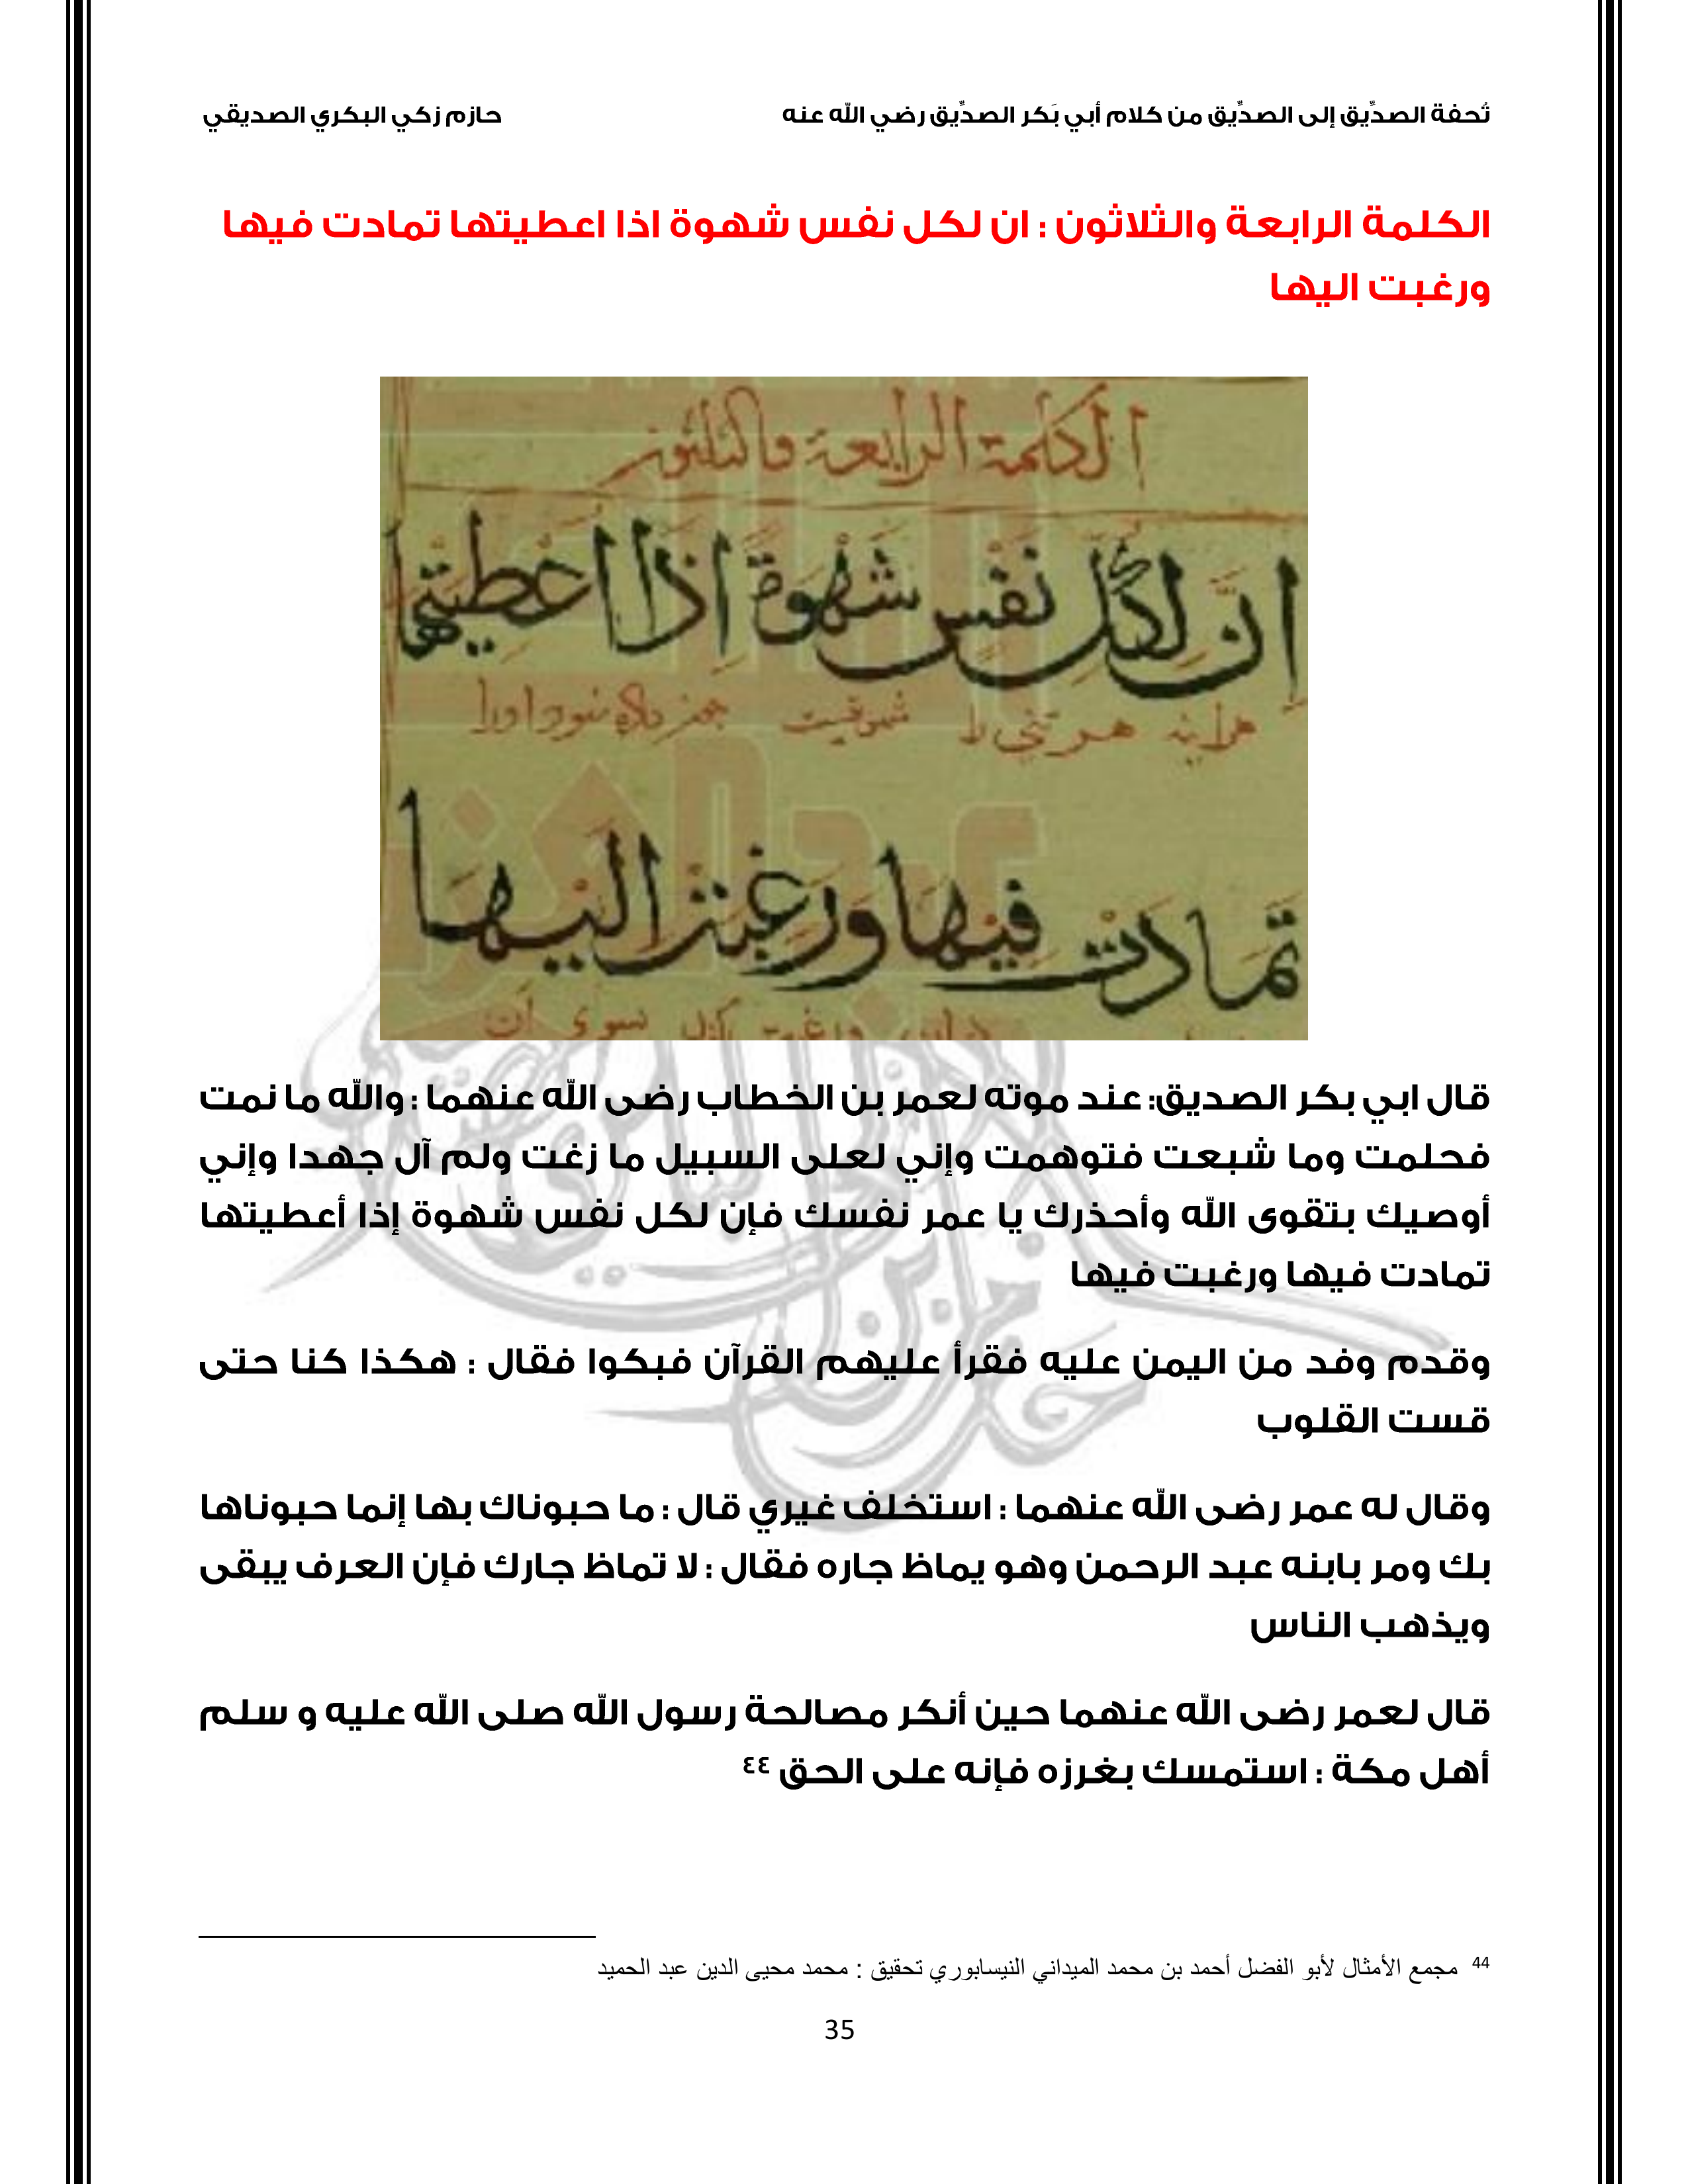 تُحفة الصدِّيق إلى الصدِّيق من كلام أبي بَكر الصدِّيق رضي الله عنه
حازم زكي البكري الصديقي
الكلمة الرابعة والثلاثون : ان لكل نفس شهوة اذا اعطيتها تمادت فيها
ورغبت اليها
الكلمة الرابعة والثلثون
اِنَّ لِكُلِّ نَفْسٍ شَهْوَةً اِذَا اَعْطَيْتَهَا
هر آینه هر تنی را
تَمَادَتْ فِيْهَا وَرَغِبَتْ اِلَيْهَا
قال ابي بكر الصديق: عند موته لعمر بن الخطاب رضى الله عنهما : والله ما نمت
فحلمت وما شبعت فتوهمت وإني لعلى السبيل ما زغت ولم آل جهدا وإني
أوصيك بتقوى الله وأحذرك يا عمر نفسك فإن لكل نفس شهوة إذا أعطيتها
تمادت فيها ورغبت فيها
وقدم وفد من اليمن عليه فقرأ عليهم القرآن فبكوا فقال : هكذا كنا حتى
قست القلوب
وقال له عمر رضى الله عنهما : استخلف غيري قال : ما حبوناك بها إنما حبوناها
بك ومر بابنه عبد الرحمن وهو يماظ جاره فقال : لا تماظ جارك فإن العرف يبقى
ويذهب الناس
قال لعمر رضى الله عنهما حين أنكر مصالحة رسول الله صلى الله عليه و سلم
أهل مكة : استمسك بغرزه فإنه على الحق ٤٤
44 مجمع الأمثال لأبو الفضل أحمد بن محمد الميداني النيسابوري تحقيق : محمد محيى الدين عبد الحميد
35